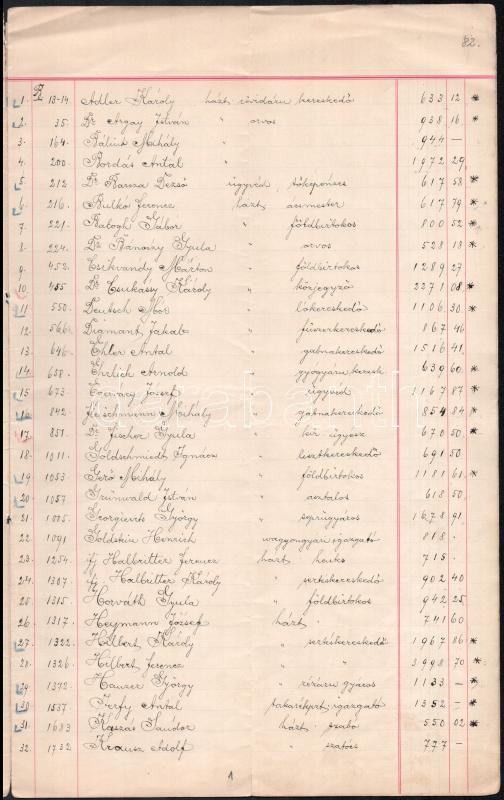 82.
1. 13-14 Adler Károly házt. rövidáru kereskedő 633 12 *
2. 35. Dr Argay István " orvos 938 16 *
3. 164. Bálint Mihály " 944 —
4. 200. Bordás Antal " 1972 29
5. 212 Dr Barcza Dezső ügyvéd tőkepénzes 617 58 *
6. 216. Bulkó Ferencz házt. ácsmester 617 79 *
7. 221. Balogh Gábor " földbirtokos 800 52 *
8. 224. Dr Gyula " orvos 528 18 *
9. 452. Csikvándy Márton " földbirtokos 1289 27
10. 455 Dr Csukassy Károly " közjegyző 2271 08 *
11. 550. Deutsch Mór " lókereskedő 1106 30 *
12. 566. Digmant Jakab " fűszerkereskedő 1167 46
13. 646. Ehler Antal " gabnakereskedő 1516 41
14. 658. Ehrlich Arnold " gyógyáru keresk 639 60 *
15. 673. József " ügyvéd 1167 87 *
16. 842. Fleischmann Mihály " gabnakereskedő 854 84 *
17. 851. Dr Fischer Gyula " kir. ügyész 670 50 *
18. 1011. Goldschmiedt Ignácz " lisztkereskedő 691 50
19. 1053 Gerő Mihály " földbirtokos 1181 61 *
20. 1057 Grünwald István " asztalos 618 50
21. 1005. Georgievits György " seprűgyáros 1678 91
22. 1091 Goldstein Henrich waggongyári igazgató 818 -
23. 1254. ifj Halbritter Ferencz házt. hentes 715 -
24. 1307. ifj Halbritter Károly " sertéskereskedő 902 40
25. 1315. Horváth Gyula " földbirtokos 942 25
26. 1317. Heymann József házt. 741 60
27. 1322. Hilbert Károly " sertéskereskedő 1967 86 *
28. 1326. Hilbert Ferencz " " 3998 70 *
29. 1372. Hauzer György " rézáru gyáros 1133 — *
30. 1537. Antal takarékprt igazgató 1352 — *
31. 1683 Kaszás Sándor házt. szabó 550 02 *
32. 1732 Krausz Adolf " szatócs 777 —
1
darabanth